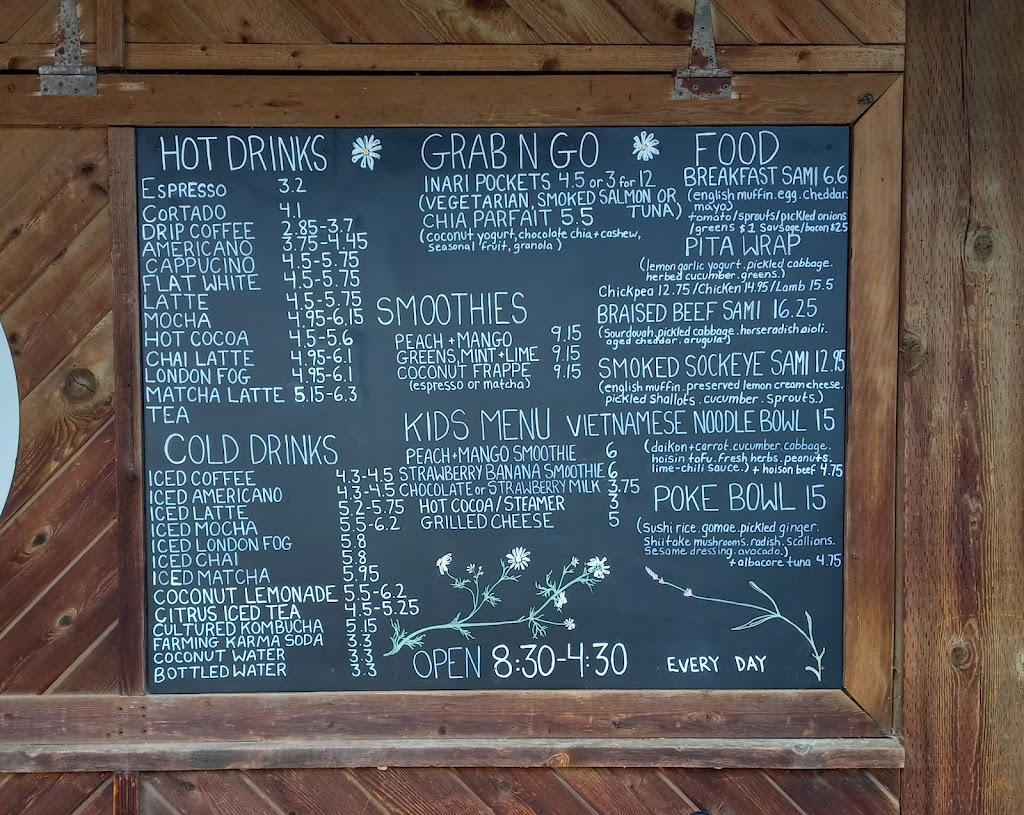 HOT DRINKS
ESPRESSO 3.2
CORTADO 4.1
DRIP COFFEE 2.85-3.7
AMERICANO 3.75-4.45
CAPPUCINO 4.5-5.75
FLAT WHITE 4.5-5.75
LATTE 4.5-5.75
MOCHA 4.95-6.15
HOT COCOA 4.5-5.6
CHAI LATTE 4.95-6.1
LONDON FOG 4.95-6.1
MATCHA LATTE 5.15-6.3
TEA
COLD DRINKS
ICED COFFEE 4.3-4.5
ICED AMERICANO 4.3-4.5
ICED LATTE 5.2-5.75
ICED MOCHA 5.5-6.2
ICED LONDON FOG 5.8
ICED CHAI 5.8
ICED MATCHA 5.95
COCONUT LEMONADE 5.5-6.2
CITRUS ICED TEA 4.5-5.25
CULTURED KOMBUCHA 5.15
FARMING KARMA SODA 3.3
COCONUT WATER 3.3
BOTTLED WATER 3.3
GRAB N GO
INARI POCKETS 4.5 or 3 for 12
(VEGETARIAN, SMOKED SALMON OR TUNA)
CHIA PARFAIT 5.5
(coconut yogurt, chocolate chia + cashew,
seasonal fruit, granola)
SMOOTHIES
PEACH + MANGO 9.15
GREENS, MINT + LIME 9.15
COCONUT FRAPPE 9.15
(espresso or matcha)
KIDS MENU
PEACH + MANGO SMOOTHIE 6
STRAWBERRY BANANA SMOOTHIE 6
CHOCOLATE or STRAWBERRY MILK 3.75
HOT COCOA / STEAMER 3
GRILLED CHEESE 5
FOOD
BREAKFAST SAMI 6.6
(english muffin. egg. cheddar.
mayo)
tomato/sprouts/pickled onions
/greens $1 Sausage/bacon $2.5
PITA WRAP
(lemon garlic yogurt. pickled cabbage.
herbed cucumber. greens.)
Chickpea 12.75 / Chicken 14.95 / Lamb 15.5
BRAISED BEEF SAMI 16.25
(Sourdough. pickled cabbage. horseradish aioli.
aged cheddar. arugula)
SMOKED SOCKEYE SAMI 12.95
(english muffin. preserved lemon cream cheese.
pickled shallots. cucumber. sprouts.)
VIETNAMESE NOODLE BOWL 15
(daikon + carrot. cucumber. cabbage.
hoisin tofu. fresh herbs. peanuts.
lime-chili sauce.) + hoison beef 4.75
POKE BOWL 15
(Sushi rice. gomae. pickled ginger.
Shiitake mushrooms. radish. scallions.
Sesame dressing. avocado.)
+ albacore tuna 4.75
OPEN 8:30-4:30 EVERY DAY